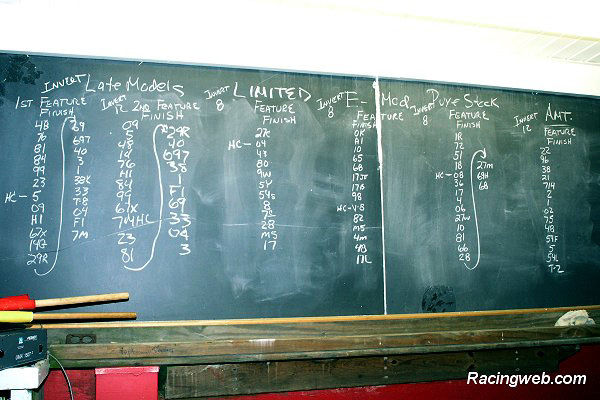 INVERT Late Models
1ST FEATURE FINISH
48
76
81
84
99
23
HC- 5
09
H1
67x
14G
29R
69
697
40
3
1
38K
33
T-8
04
F1
7M
INVERT 12 2ND FEATURE FINISH
09
5
48
14
76
H1
84
99
67x
7M HC
23
81
29R
04
40
697
38
1
F1
69
33
04
3
INVERT 8 LIMITED
FEATURE FINISH
27c
HC- 04
43
80
9W
5Y
54s
8
7s
28
M5
17
INVERT 8 E-Mod
FEATURE FINISH
OK
A1
10
65
68
17JR
17G
98
HC-V-8
82
M5
4m
4B
17L
INVERT 8 Pure Stock
FEATURE FINISH
1R
72
51
18
HC- 08
36
17
4
06
27w
10
81
66
28
27m
69N
68
INVERT 12 AMT.
FEATURE FINISH
22
96
38
21
714
2
1
02
75
48
51F
5
54L
T-2
Racingweb.com